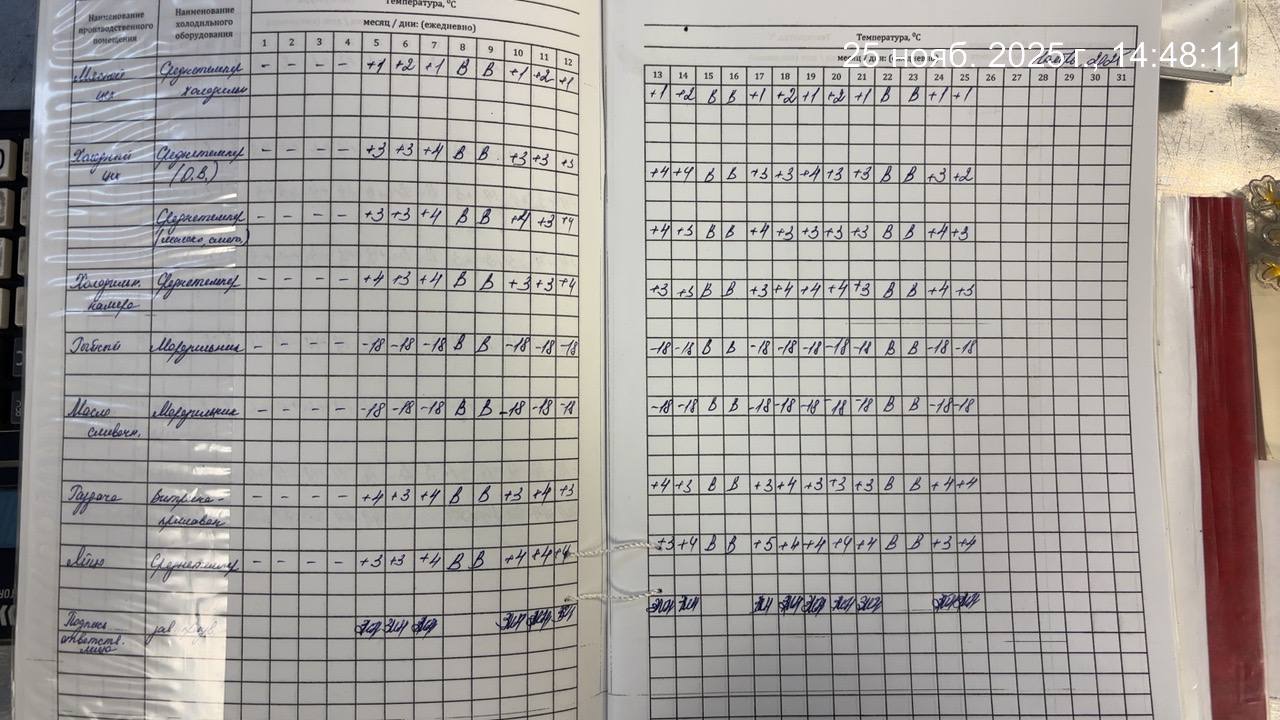 Наименование производственного помещения
Наименование холодильного оборудования
Температура, °С
месяц / дни: (ежедневно)
1 2 3 4 5 6 7 8 9 10 11 12
Мясной Среднетемпер - - - - +1 +2 +1 В В +1 +2 +1
цех холодильн
Холодный Среднетемпер - - - - +3 +3 +4 В В +3 +3 +3
цех (О.В.)
Среднетемпер - - - - +3 +3 +4 В В +4 +3 +4
(молоко, смета.)
Холодильн. Среднетемпер - - - - +4 +3 +4 В В +3 +3 +4
камера
Морозильник - - - - -18 -18 -18 В В -18 -18 -18
Масло Морозильник - - - - -18 -18 -18 В В -18 -18 -18
сливочн.
Раздача витрина- - - - - +4 +3 +4 В В +3 +4 +3
прилавок
Среднетемпер - - - - +3 +3 +4 В В +4 +4 +4
Подпись зав.
ответств.
лица
Температура, °С
25 нояб. 2025 г., 14:48:11
месяц / дни: (ежедневно)
13 14 15 16 17 18 19 20 21 22 23 24 25 26 27 28 29 30 31
+1 +2 В В +1 +2 +1 +2 +1 В В +1 +1
+4 +4 В В +3 +3 +4 +3 +3 В В +3 +2
+4 +3 В В +4 +3 +3 +3 +3 В В +4 +3
+3 +3 В В +3 +4 +4 +4 +3 В В +4 +3
-18 -18 В В -18 -18 -18 -18 -18 В В -18 -18
-18 -18 В В -18 -18 -18 -18 -18 В В -18 -18
+4 +3 В В +3 +4 +3 +3 +3 В В +4 +4
+3 +4 В В +5 +4 +4 +4 +4 В В +3 +4